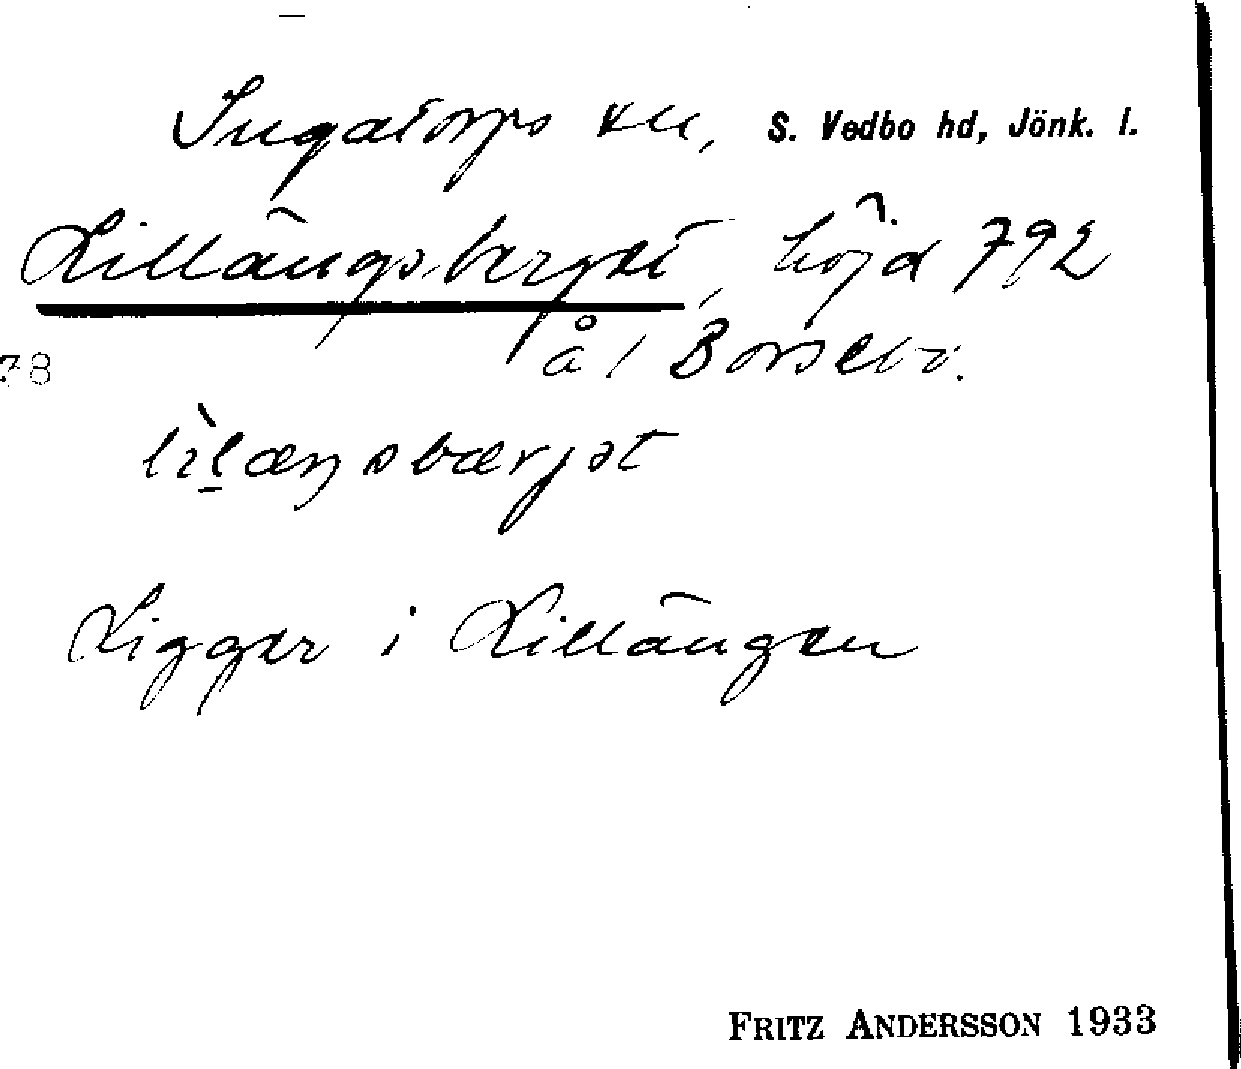 Ingatorps sn, S. Vedbo hd, Jönk. l.
Lillängsberget, höjd 792
å / Borsebo.
78
Ligger i Lillängen
FRITZ ANDERSSON 1933